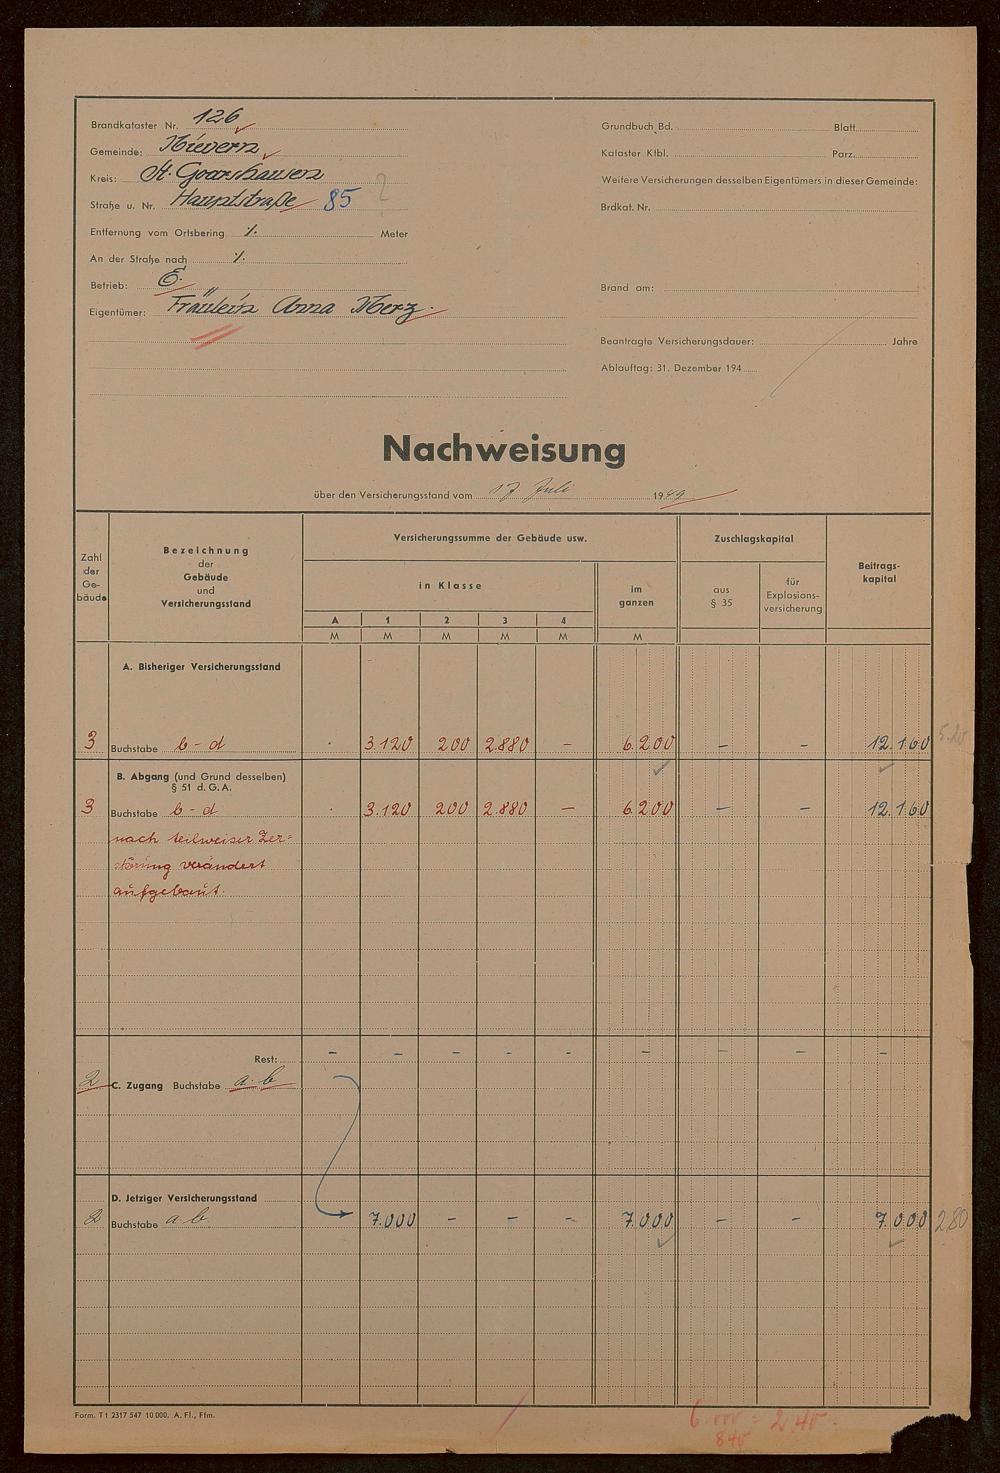 Brandkataster Nr. 126
Gemeinde: Nievern
Kreis: St. Goarshausen
Straße u. Nr. Hauptstraße 85 ?
Entfernung vom Ortsbering ·/. Meter
An der Straße nach ·/.
Betrieb: E.
Eigentümer: Fräulein Anna Merz.
Grundbuch Bd. Blatt
Kataster Ktbl. Parz.
Weitere Versicherungen desselben Eigentümers in dieser Gemeinde:
Brdkat. Nr.
Brand am:
Beantragte Versicherungsdauer: Jahre
Ablauftag: 31. Dezember 194
Nachweisung
über den Versicherungsstand vom 17 Juli 1949
Zahl der Ge-bäude
Bezeichnung
der
Gebäude
und
Versicherungsstand
Versicherungssumme der Gebäude usw.
in Klasse
A 1 2 3 4
im ganzen
M M M M M M
Zuschlagskapital
aus § 35
für Explosions-versicherung
Beitrags-kapital
A. Bisheriger Versicherungsstand
3 Buchstabe b - d · 3.120 200 2.880 – 6.200 – – 12.160
B. Abgang (und Grund desselben)
§ 51 d. G. A.
3 Buchstabe b - d · 3.120 200 2.880 – 6.200 – – 12.160
nach teilweiser Zer=
störung verändert
aufgebaut.
Rest: – – – – – – – – –
2 C. Zugang Buchstabe a. b
D. Jetziger Versicherungsstand
2 Buchstabe a b 7.000 – – – 7.000 – – 7.000 280
Form. T 1 2317 547 10 000. A. Fl., Ffm.
6.000 = 2.40
840